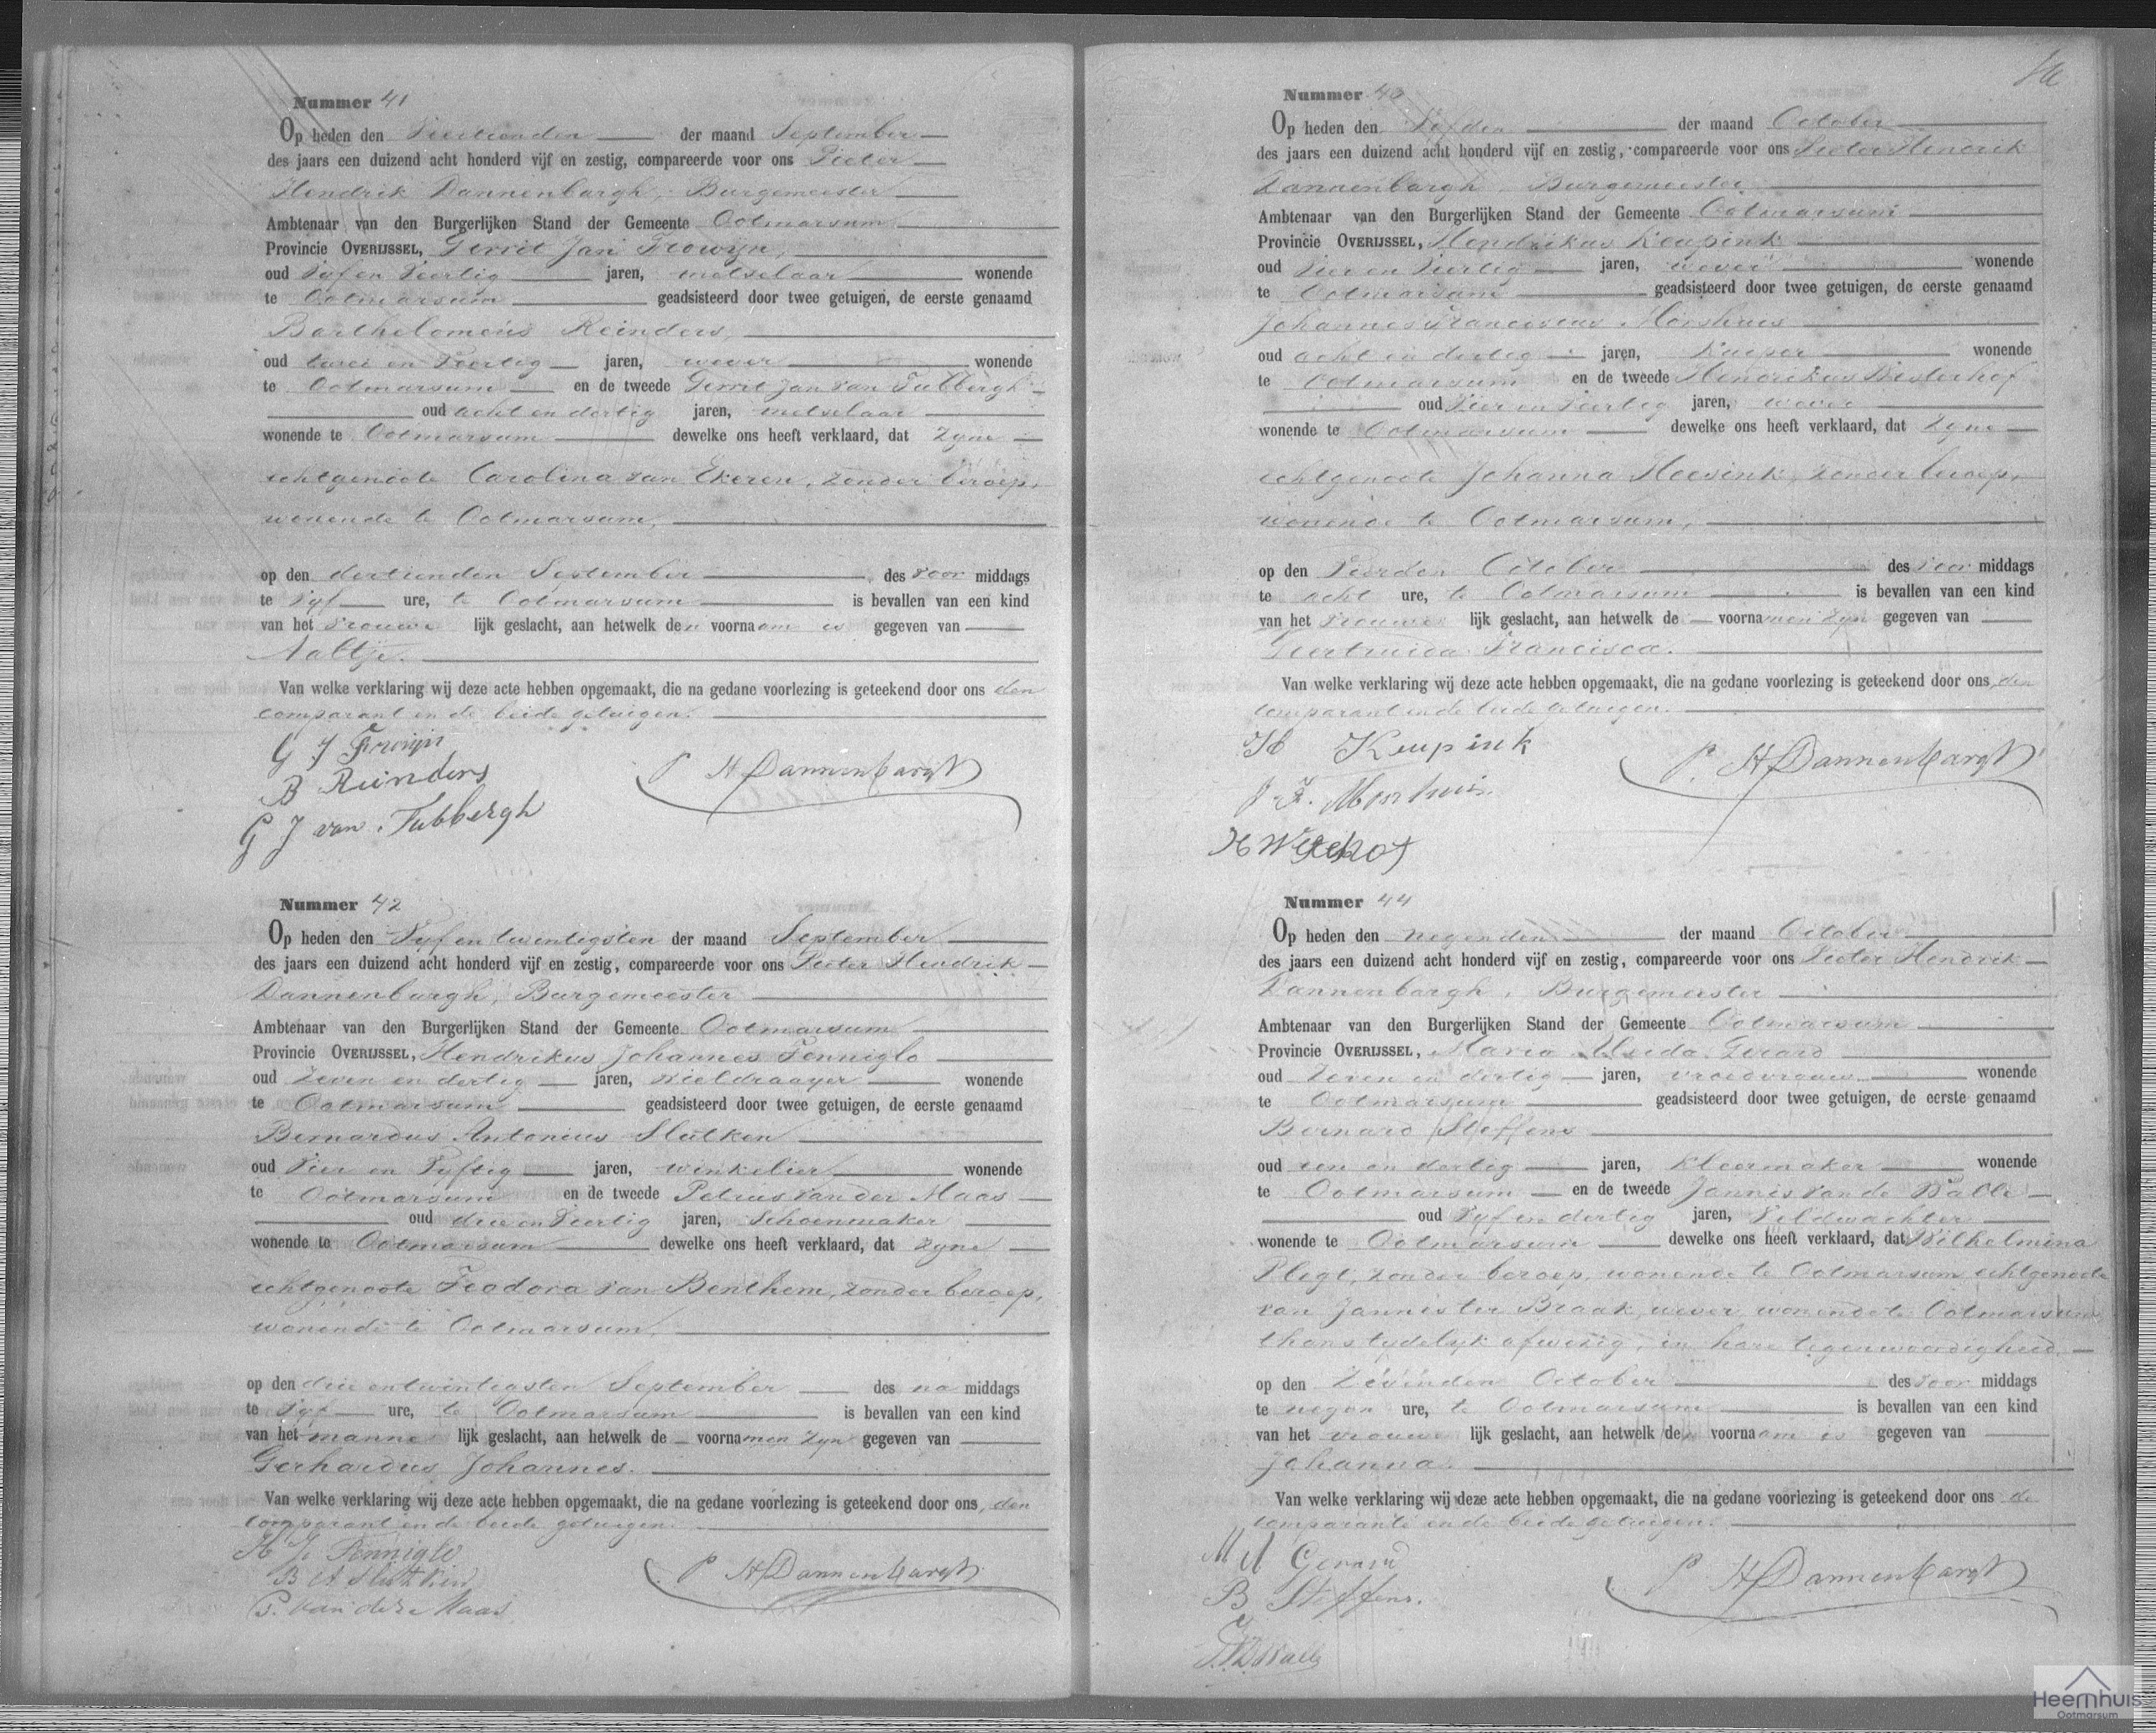 Nummer 41
Op heden den Viertienden der maand September
des jaars een duizend acht honderd vijf en zestig, compareerde voor ons Pieter
Hendrik Dannenbargh, Burgemeester
Ambtenaar van den Burgerlijken Stand der Gemeente Ootmarsum
Provincie OVERIJSSEL, Gerrit Jan Frowijn,
oud Vyf en Veertig jaren, metselaar wonende
te Ootmarsum geadsisteerd door twee getuigen, de eerste genaamd
Bartholomeus Reinders
oud twee en Veertig jaren, wever wonende
te Ootmarsum en de tweede Gerrit Jan van Tubbergh
oud acht en dertig jaren, metselaar
wonende te Ootmarsum dewelke ons heeft verklaard, dat zyne
echtgenoote Carolina van Ekeren, zonder beroep,
wonende te Ootmarsum,
op den dertienden September des voor middags
te Vyf ure, te Ootmarsum is bevallen van een kind
van het vrouwe lijk geslacht, aan hetwelk den voornaam is gegeven van
Aaltje.
Van welke verklaring wij deze acte hebben opgemaakt, die na gedane voorlezing is geteekend door ons den
comparant en de beide getuigen.
G J Frowijn
B Reinders
G J van Tubbergh
P H Dannenbargh
Nummer 42
Op heden den Vyf en twentigsten der maand September
des jaars een duizend acht honderd vijf en zestig, compareerde voor ons Pieter Hendrik
Dannenbargh, Burgemeester
Ambtenaar van den Burgerlijken Stand der Gemeente Ootmarsum
Provincie OVERIJSSEL, Hendrikus Johannes Fenniglo
oud Zeven en dertig jaren, wieldraayer wonende
te Ootmarsum geadsisteerd door twee getuigen, de eerste genaamd
Bernardus Antonius Slutken
oud Vier en Vyftig jaren, winkelier wonende
te Ootmarsum en de tweede Petrus van der Maas
oud drie en Veertig jaren, Schoenmaker
wonende te Ootmarsum dewelke ons heeft verklaard, dat zyne
echtgenoote Feodora van Benthem, zonder beroep,
wonende te Ootmarsum,
op den drie en twintigsten September des na middags
te Vyf ure, te Ootmarsum is bevallen van een kind
van het manne lijk geslacht, aan hetwelk de voornamen zyn gegeven van
Gerhardus Johannes.
Van welke verklaring wij deze acte hebben opgemaakt, die na gedane voorlezing is geteekend door ons, den
comparant en de beide getuigen.
H J Fenniglo
B A Slutken
P. van der Maas
P H Dannenbargh
Nummer 43
Op heden den Vyfden der maand October
des jaars een duizend acht honderd vijf en zestig, compareerde voor ons Pieter Hendrik
Dannenbargh, Burgemeester
Ambtenaar van den Burgerlijken Stand der Gemeente Ootmarsum
Provincie OVERIJSSEL, Hendrikus Keupink
oud Vier en Veertig jaren, wever wonende
te Ootmarsum geadsisteerd door twee getuigen, de eerste genaamd
Johannes Franciscus Morshuis
oud acht en dertig jaren, Kuiper wonende
te Ootmarsum en de tweede Hendrikus
oud Vier en Veertig jaren, wever
wonende te Ootmarsum dewelke ons heeft verklaard, dat zyne
echtgenoote Johanna Heesink, zonder beroep,
wonende te Ootmarsum,
op den Vierden October des voor middags
te acht ure, te Ootmarsum is bevallen van een kind
van het vrouwe lijk geslacht, aan hetwelk de voornamen zyn gegeven van
Geertruida Francisca.
Van welke verklaring wij deze acte hebben opgemaakt, die na gedane voorlezing is geteekend door ons, den
comparant en de beide getuigen.
H Keupink
J F. Morshuis
P. H Dannenbargh
Nummer 44
Op heden den negenden der maand October
des jaars een duizend acht honderd vijf en zestig, compareerde voor ons Pieter Hendrik
Dannenbargh, Burgemeester
Ambtenaar van den Burgerlijken Stand der Gemeente Ootmarsum
Provincie OVERIJSSEL, Maria Gerard
oud Zeven en dertig jaren, vroedvrouw wonende
te Ootmarsum geadsisteerd door twee getuigen, de eerste genaamd
Bernard Steffens
oud een en dertig jaren, Kleermaker wonende
te Ootmarsum en de tweede Jannis van de Walle
oud Vyf en dertig jaren, Veldwachter
wonende te Ootmarsum dewelke ons heeft verklaard, dat Wilhelmina
Plegt, zonder beroep, wonende te Ootmarsum echtgenoote
van Jannis ter Braak, wever wonende te Ootmarsum
thans tydelyk afwezig, in hare tegenwoordigheid,
op den Zevenden October des voor middags
te negen ure, te Ootmarsum is bevallen van een kind
van het vrouwe lijk geslacht, aan hetwelk den voornaam is gegeven van
Johanna.
Van welke verklaring wij deze acte hebben opgemaakt, die na gedane voorlezing is geteekend door ons de
comparante en de beide getuigen.
M A Gerard
B Steffens.
P H Dannenbargh
Heemhuis
Ootmarsum